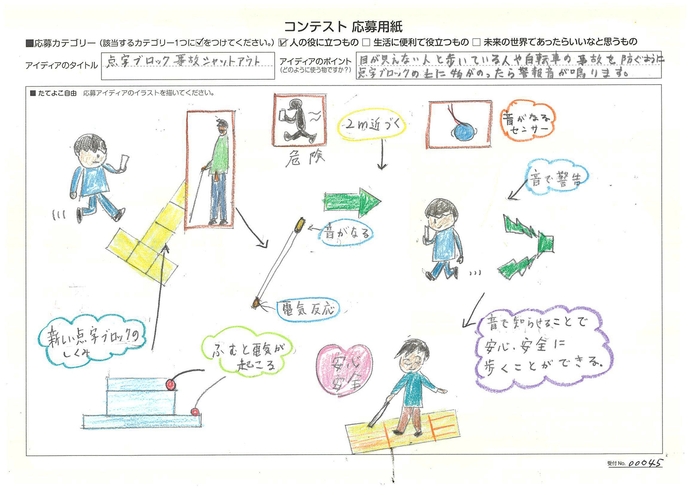 コンテスト 応募用紙
■応募カテゴリー（該当するカテゴリー1つに✓をつけてください。） ☑ 人の役に立つもの □ 生活に便利で役立つもの □ 未来の世界であったらいいなと思うもの
アイディアのタイトル
点字ブロック事故シャットアウト
アイディアのポイント
（どのように使う物ですか？）
目が見えない人と歩いている人や自転車の事故を防ぐように
点字ブロックの上に物がのったら警報音が鳴ります。
■たてよこ自由 応募アイディアのイラストを描いてください。
危険
2m近づく
音がなる
センサー
音で警告
音がなる
電気反応
新しい点字ブロックの
しくみ
ふむと電気が
起こる
安心
安全
音で知らせることで
安心・安全に
歩くことができる。
受付No. 00045